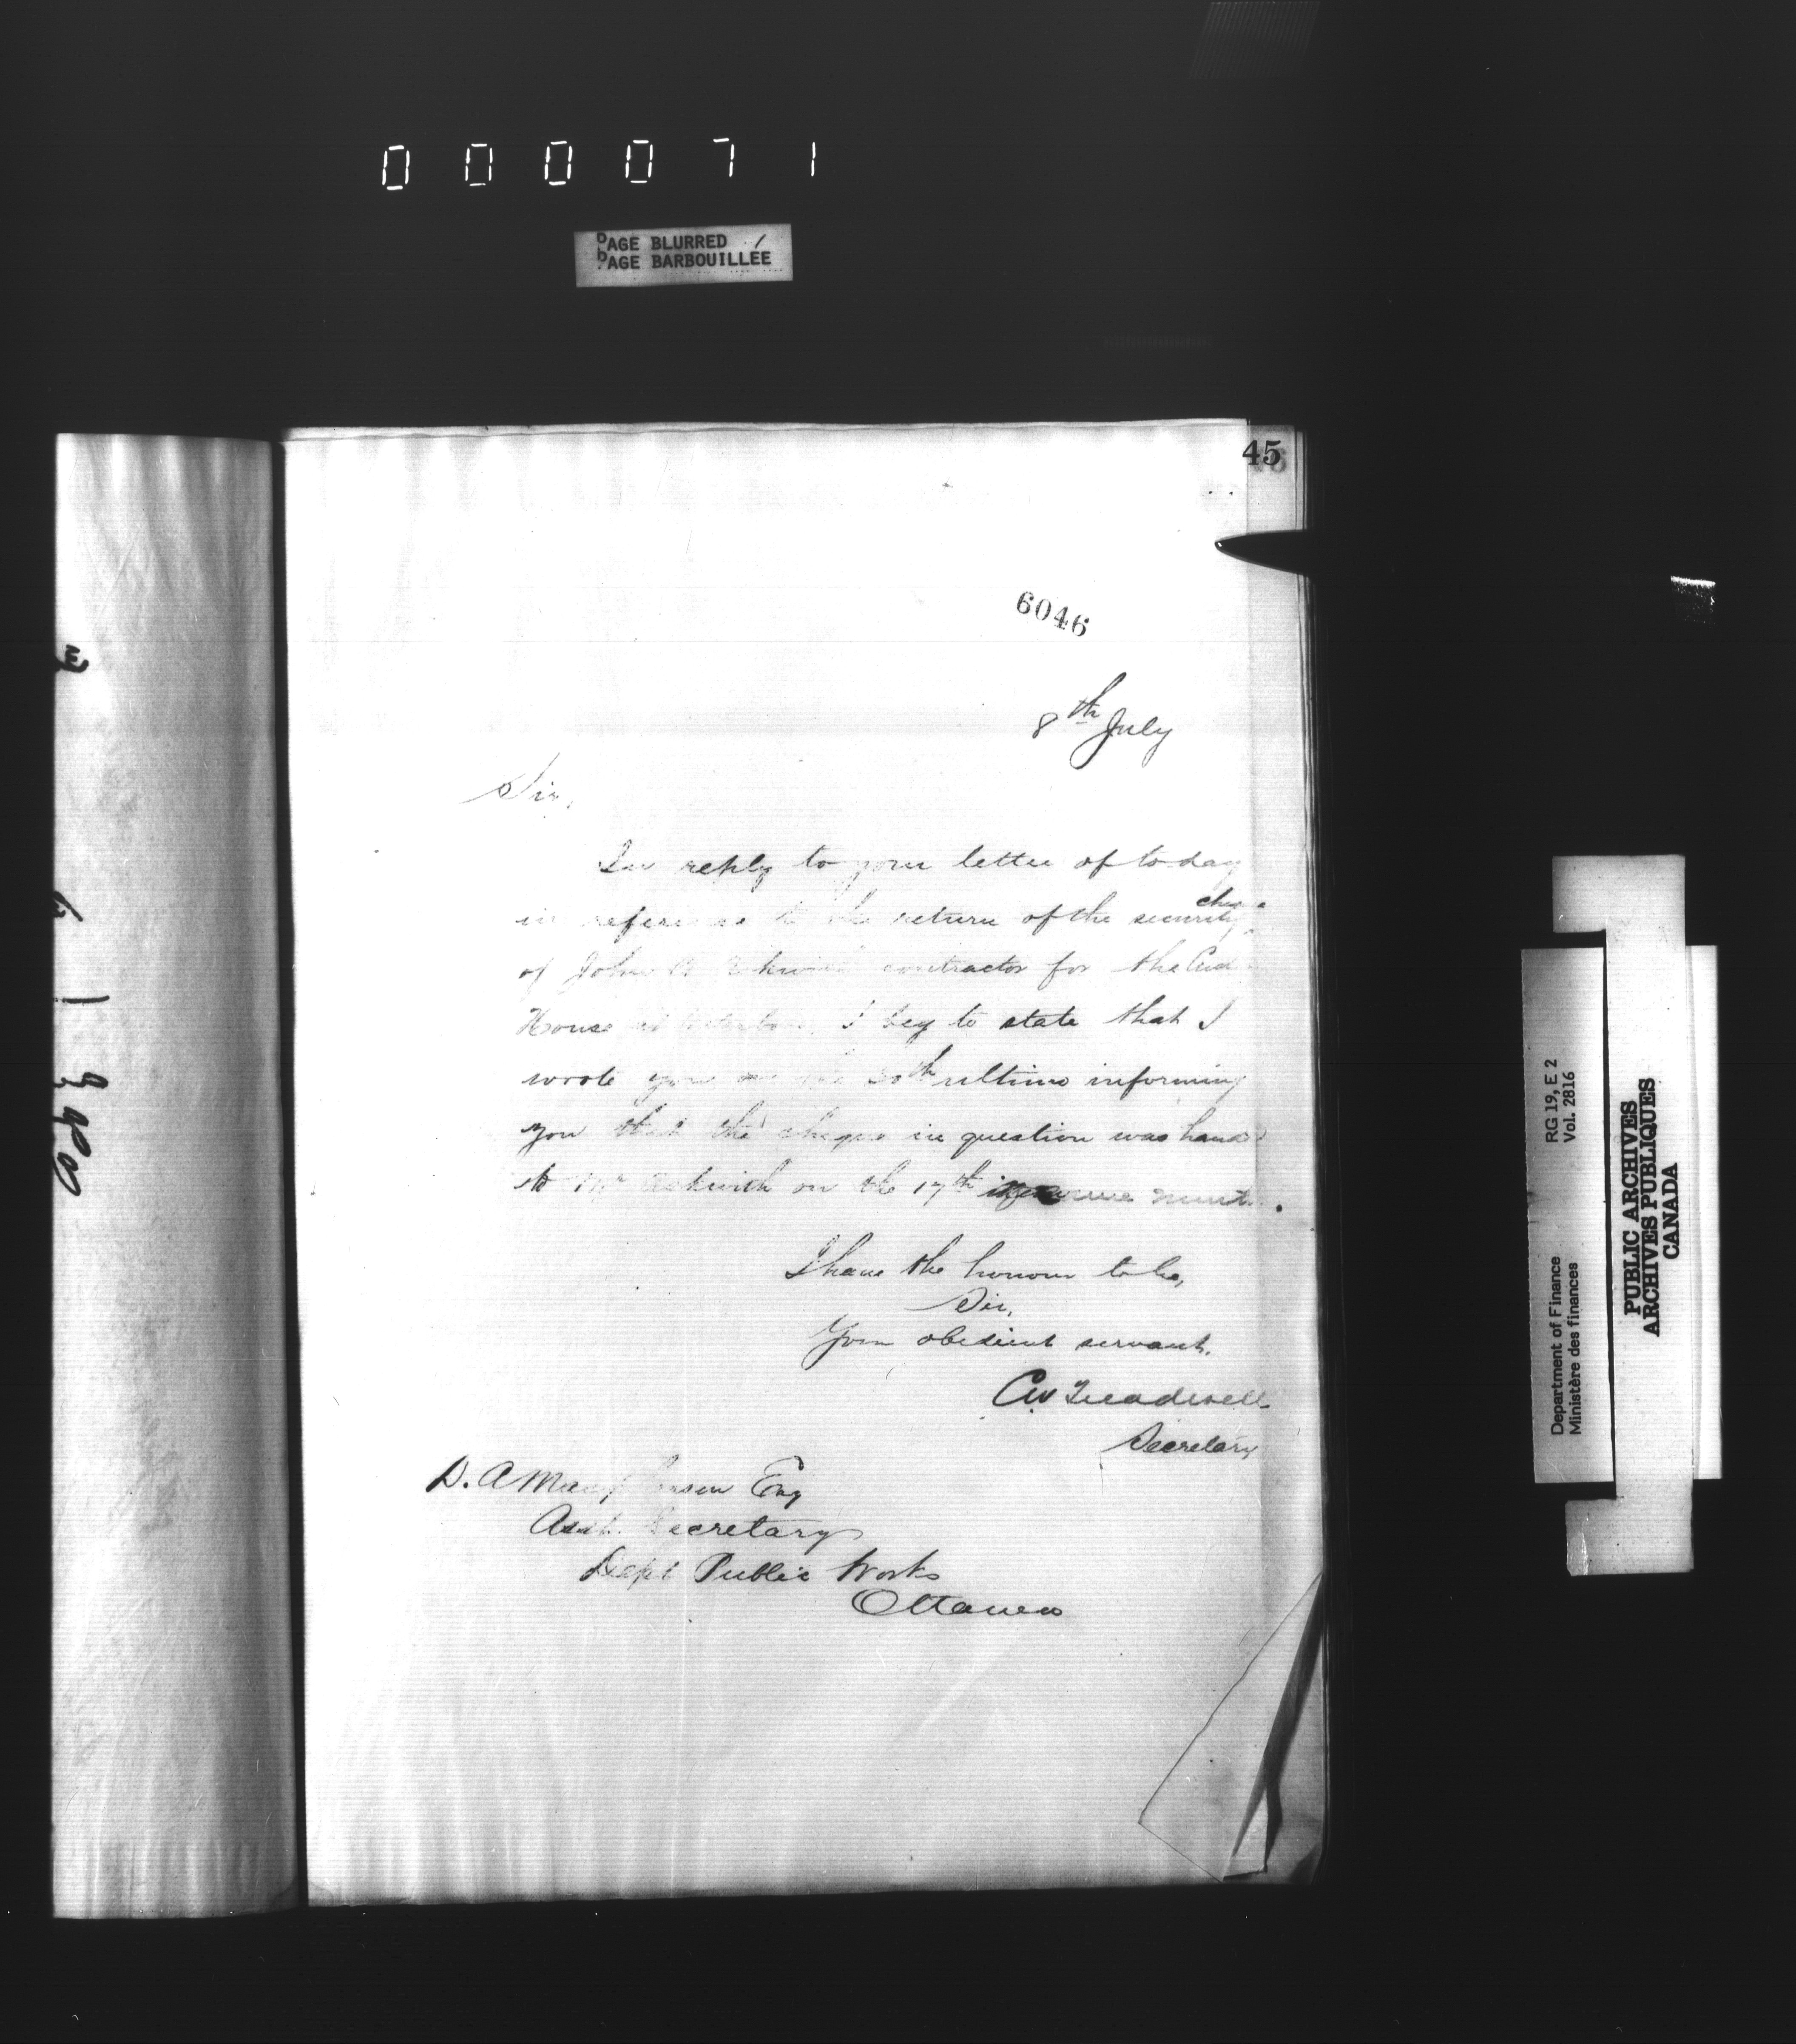 000071
PAGE BLURRED
PAGE BARBOUILLÉE
45
6046
8th July
Sir,
In reply to your letter of to-day
in reference to the return of the security cheque
of John Askwith contractor for the
House at I beg to state that I
wrote you on the 30th ultimo informing
you that the cheque in question was handed
to Mr Askwith on the 17th
I have the honour to be,
Sir,
Your obedient servant.
CW Treadwell
Secretary
D. A Macpherson Esq
Asst. Secretary
Dept Public Works
Ottawa
RG 19, E 2
Vol. 2816
Department of Finance
Ministère des finances
PUBLIC ARCHIVES
ARCHIVES PUBLIQUES
CANADA